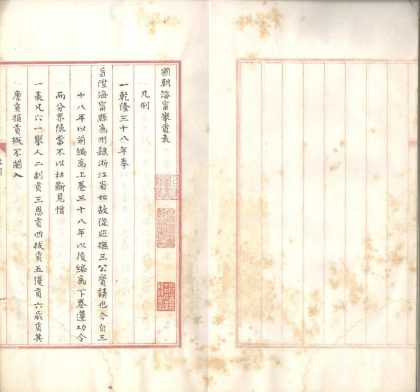 國朝海甯舉貢表
凡例
一乾隆三十八年奉
旨陞海甯縣爲州隸浙江省如故從巡撫三公寶請也今自三
十八年以前編爲上卷三十八年以後編爲下卷遵功令
而分界限當不以杜斷見憎
一表凡六一舉人二副貢三恩貢四拔貢五優貢六歲貢其
廩貢捐貢概不闌入